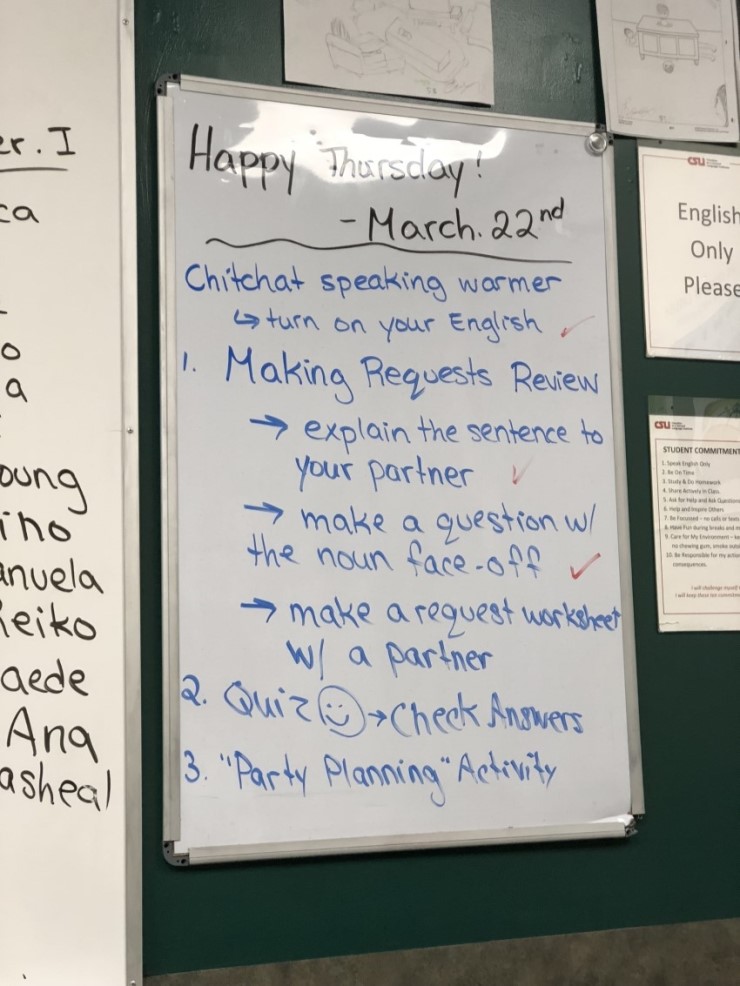 er. I
ca
o
a
oung
ino
anuela
eiko
aede
Ana
asheal
Happy Thursday!
- March. 22nd
Chitchat speaking warmer
↳ turn on your English ✓
1. Making Requests Review
→ explain the sentence to
your partner ✓
→ make a question w/
the noun face-off ✓
→ make a request worksheet
w/ a partner
2. Quiz ☺ → Check Answers
3. "Party Planning" Activity
CSU
English
Only
Please
CSU
STUDENT COMMITMENT
1. Speak English Only
2. Be On Time
3. Study & Do Homework
4. Share Actively in Class
5. Ask for Help and Ask Questions
6. Help and Inspire Others
7. Be Focused - no calls or texts
8. Have Fun during breaks and
9. Care for My Environment -
no chewing gum, smoke
10. Be Responsible for my
consequences.
I will challenge myself
I will keep these